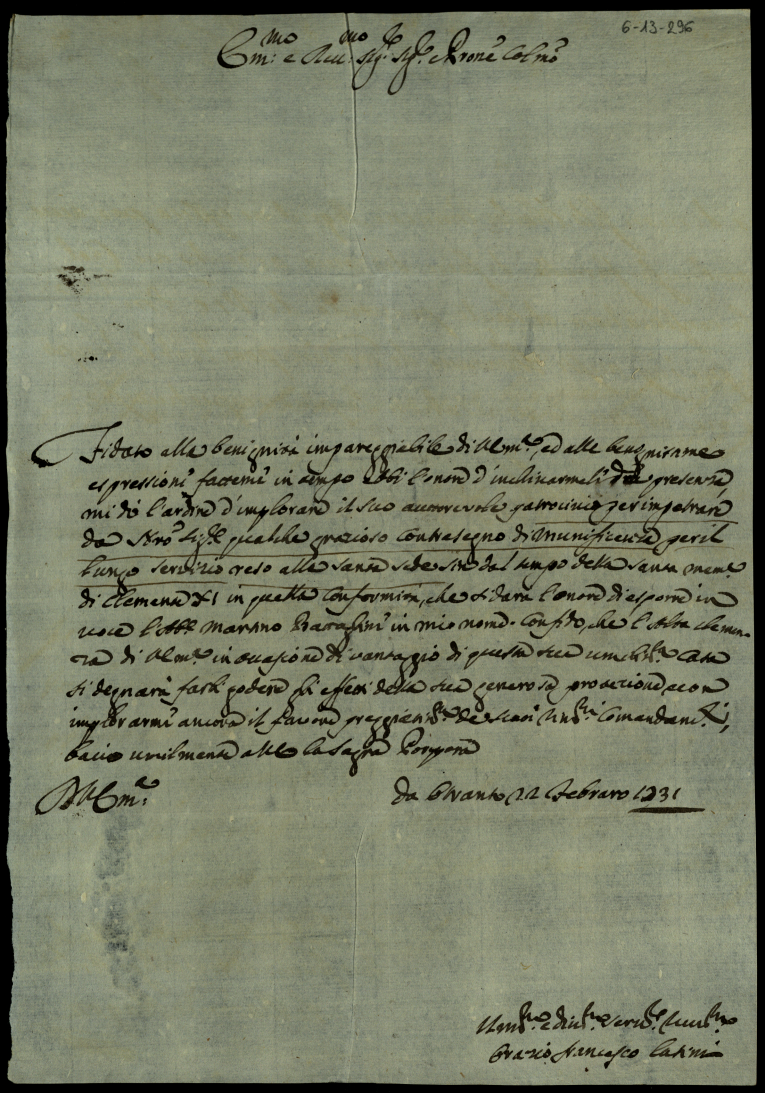 6-13-296
Em:mo e Reu:mo Sig:re Sig:re Prone Colmo
Fidato alla benignità impareggiabile di VEm:a, ed alle benignissime
espressioni fattemi in tempo ebbi l'onore d'inclinarmeli di presenza,
mi dò l'ardire d'implorare il suo autorevole patrocinio per impetrare
da Nro Sig:re qualche grazioso contrasegno di munificenza per il
lungo servizio reso alla Santa Sede sin dal tempo della santa mem:a
di Clemente XI in quella conformità, che si darà l'onore di esporre in
voce l'Abb: Marino in mio nome. Confido, che l'Alta Clemen-
za di VEm:a in occasione di vantaggio di questa sua umil:ma Casa
si degnarà farli godere gli effetti della sua generosa protezione, e con
implorarmi ancora il favore preggiatis:mo de suoi Comandam:ti,
bacio umilmente all'E V la Sagra Porpora
Di VEm:a
da Otranto 22 Febraro 1731
Umil:mo e diu:mo Seru:re
Orazio Francesco